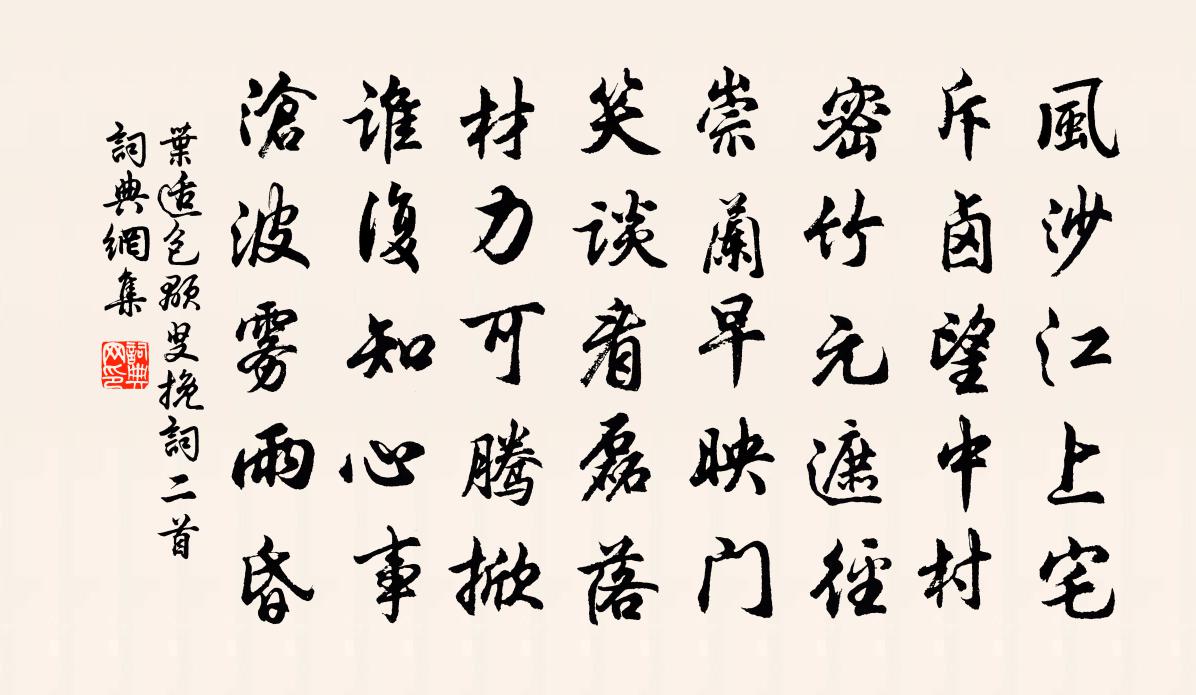 風沙江上宅
斥鹵望中村
密竹元遮徑
崇蘭早映门
笑談看磊落
材力可騰掀
誰復知心事
滄波雾雨昏
葉適包顒叟挽詞二首
詞典網集
詞典
网印